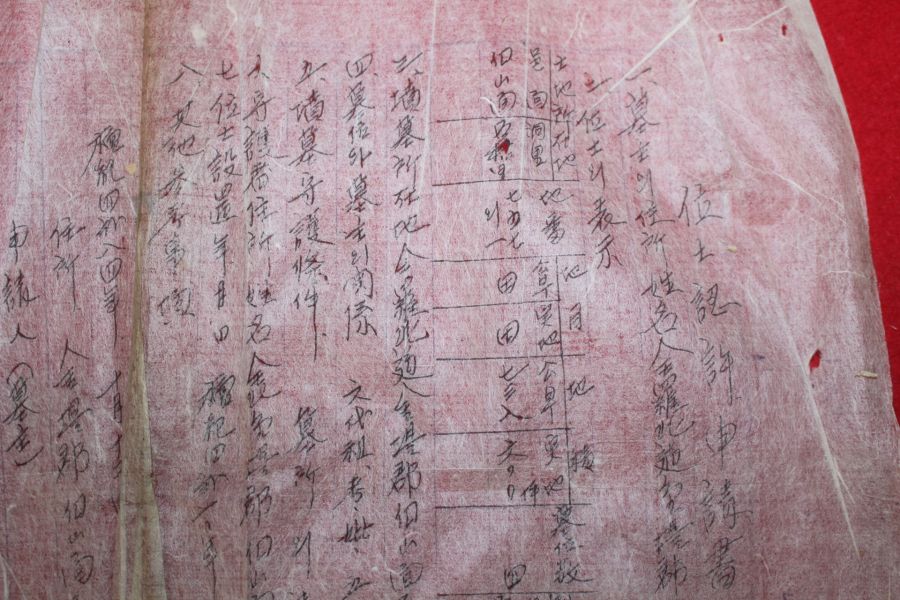 位土認許申請書
一、墓主의住所姓名 全羅北道金堤郡
二、位土의表示
土地所在地 地番 地目 地積 墓位数
邑面 洞里 公簿 現地 公簿 現地
白山面 七五七의一 田 田 七三八 六〇〇 四
三、墳墓所在地 全羅北道金堤郡白山面
四、墓位外墓主의関係 六代祖、考、妣、五
五、墳墓守護條件、墓所의
六、守護者住所姓名 金堤郡白山
七、位土設置年月日 檀紀四
八、其他参考事項
檀紀四二八四年 十月
住所 全北金堤郡白山面
申請人(墓主)